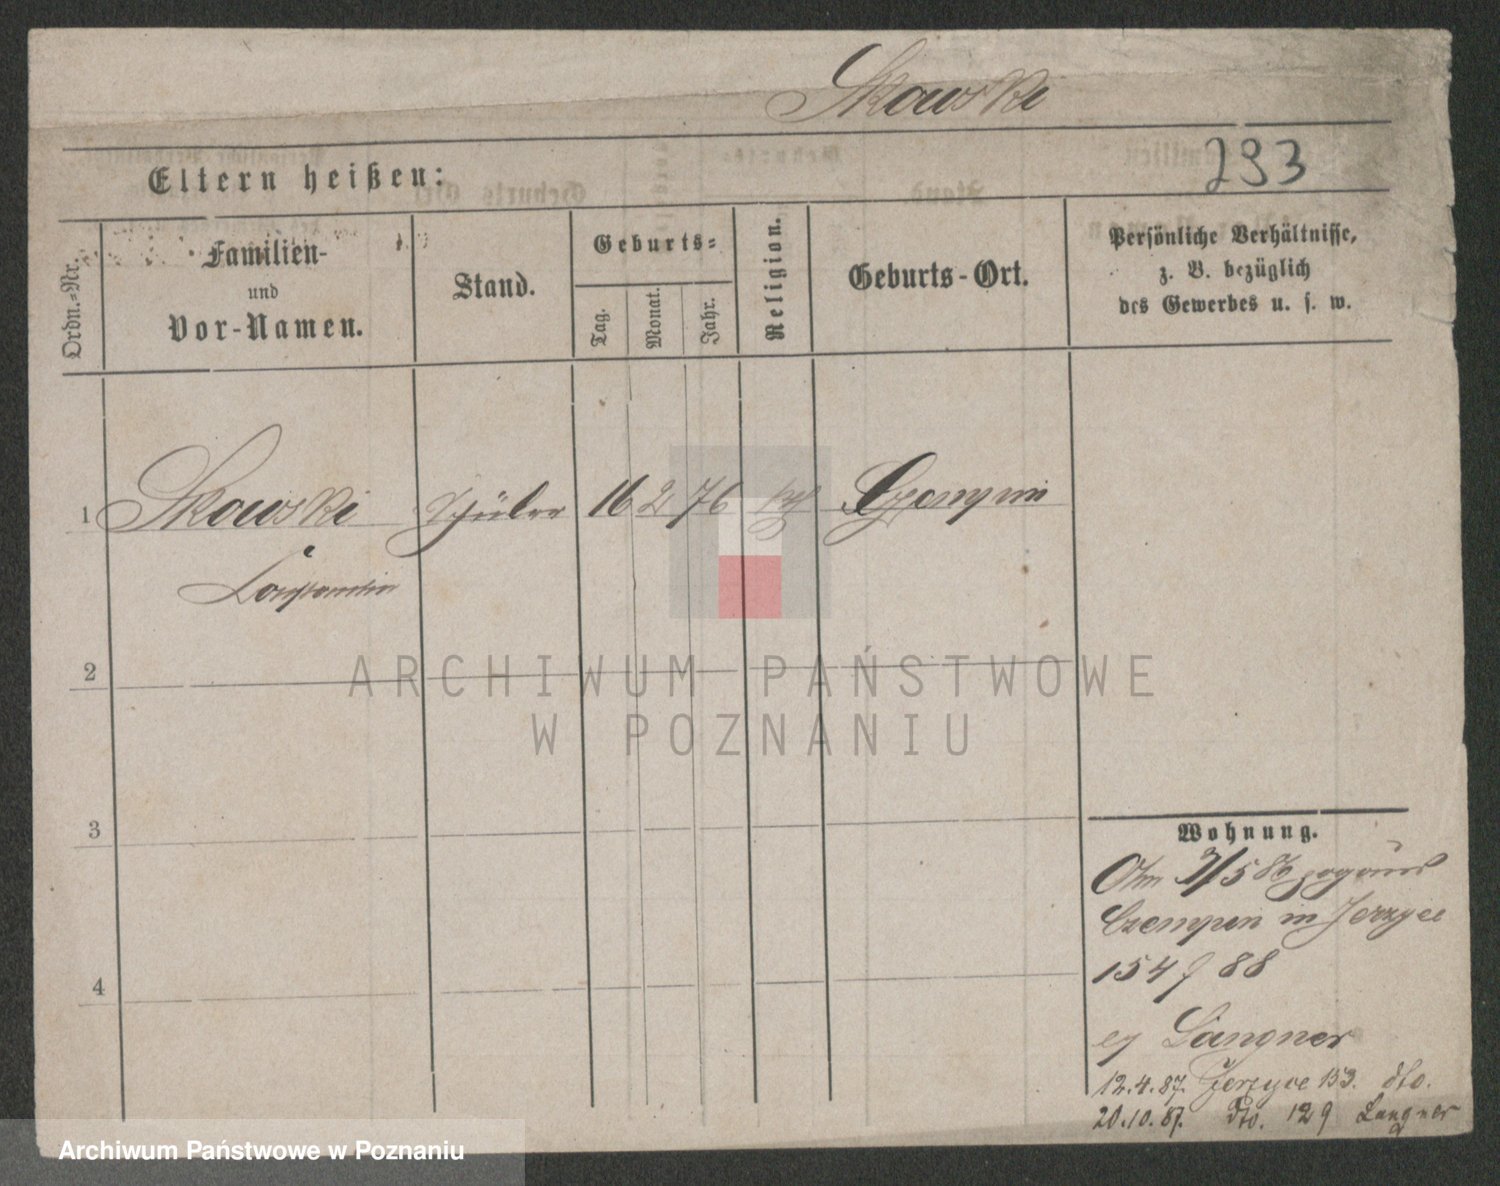 Skowski
293
Eltern heißen:
Ordn.=Nr.
Familien-
und
Vor-Namen.
Stand.
Geburts=
Tag.
Monat.
Jahr.
Religion.
Geburts-Ort.
Persönliche Verhältnisse,
z. B. bezüglich
des Gewerbes u. s. w.
1 Skowski Schüler 16 2 76 Czempin
Constantin
2
3
4
ARCHIWUM PAŃSTWOWE
W POZNANIU
Wohnung.
Czempin in Jerzyce
154 88
Langner
12.4.87. Jerzyce 133. dto.
20.10.87. dto. 129 Langner
Archiwum Państwowe w Poznaniu